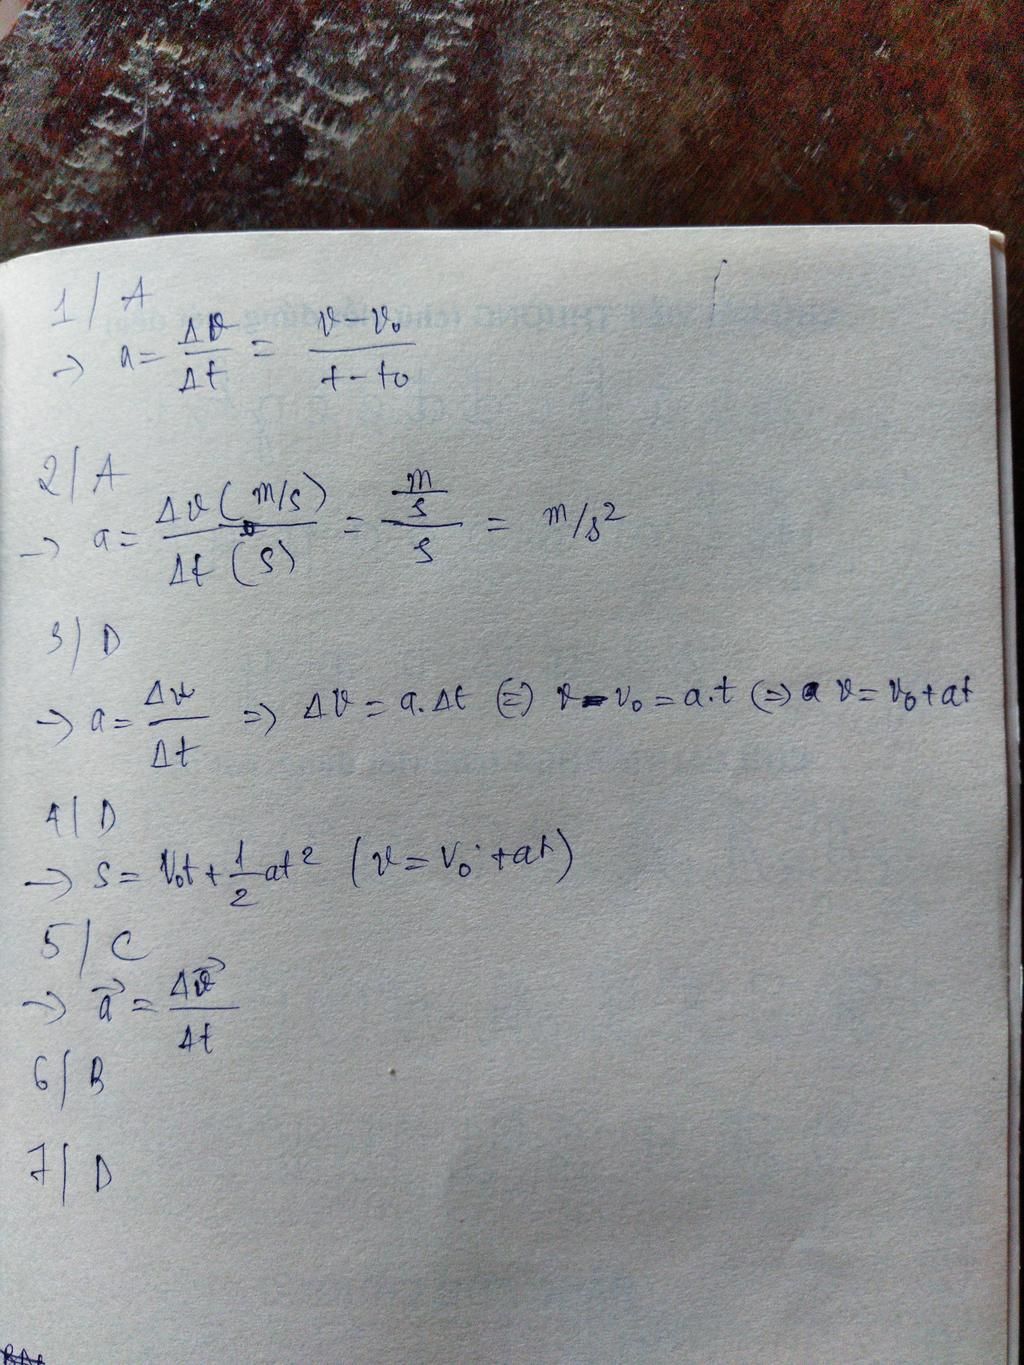 1/ A
→ a = Δv/Δt = (v - v₀)/(t - t₀)
2/ A
→ a = Δv (m/s)/Δt (s) = (m/s)/s = m/s²
3/ D
→ a = Δv/Δt ⇒ Δv = a.Δt (=) v - v₀ = a.t (=) v = v₀ + at
4/ D
→ s = v₀t + 1/2 at² (v = v₀ + at)
5/ C
→ a⃗ = Δv⃗/Δt
6/ B
7/ D